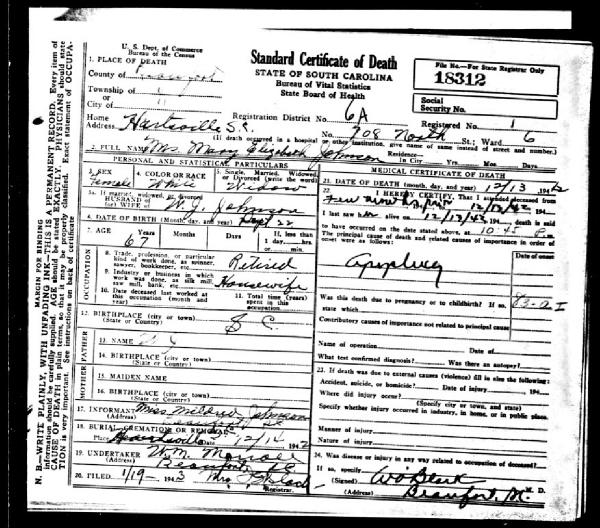 U. S. Dept. of Commerce
Bureau of the Census
Standard Certificate of Death
STATE OF SOUTH CAROLINA
Bureau of Vital Statistics
State Board of Health
File No.—For State Registrar Only
18312
Social
Security No.
1. PLACE OF DEATH
County of
Township of
or
City of
Registration District No. 6A
Registered No. 1
Home
Address Hartsville S.C.
No. 708 North St.; Ward 6
(If death occurred in a hospital or other institution, give name of same instead of street and number.)
2. FULL NAME Mrs. Mary Elizabeth Johnson
Residence— In City Yrs. Mos. Days.
PERSONAL AND STATISTICAL PARTICULARS
3. SEX
Female
4. COLOR OR RACE
White
5. Single, Married, Widowed, or Divorced (write the word)
Widow
5a. If married, widowed, or divorced
HUSBAND of
(or) WIFE of W. J. Johnson
6. DATE OF BIRTH (Month, day, and year) Sept 22
7. AGE Years Months Days
67
If LESS than 1 day, hrs. or min.
OCCUPATION
8. Trade, profession, or particular kind of work done, as spinner, sawyer, bookkeeper, etc. Retired
9. Industry or business in which work was done, as silk mill, saw mill, bank, etc. Housewife
10. Date deceased last worked at this occupation (month and year)
11. Total time (years) spent in this occupation
12. BIRTHPLACE (city or town)
(State or Country) S C.
FATHER
13. NAME
14. BIRTHPLACE (city or town)
(State or Country)
MOTHER
15. MAIDEN NAME
16. BIRTHPLACE (city or town)
(State or Country)
17. INFORMANT Mrs Mildred Johnson
(Address)
18. BURIAL, CREMATION OR REMOVAL
Place Hartsville Date 12/14 1942
19. UNDERTAKER W. M.
(Address) Beaufort, S C
20. FILED 1/19— 1943
Registrar.
MEDICAL CERTIFICATE OF DEATH
21. DATE OF DEATH (month, day, and year) 12/13 1942
22. I HEREBY CERTIFY, That I attended deceased from
12/13/42
I last saw her alive on 12/13/42 death is said
to have occurred on the date stated above, at 10:45 P m
The principal cause of death and related causes of importance in order of
onset were as follows:
Date of onset
Apoplexy
Was this death due to pregnancy or to childbirth? If so,
state which
83-a I
Contributory causes of importance not related to principal cause
Name of operation Date of
What test confirmed diagnosis? Was there an autopsy?
23. If death was due to external causes (violence) fill in also the following:
Accident, suicide, or homicide? Date of injury 194
Where did injury occur?
(Specify city or town, and state)
Specify whether injury occurred in industry, in home, or in public place.
Manner of injury
Nature of injury
24. Was disease or injury in any way related to occupation of deceased?
If so, specify
(Signed) M. D.
(Address) Beaufort,
MARGIN FOR BINDING
N. B.—WRITE PLAINLY, WITH UNFADING INK—THIS IS A PERMANENT RECORD. Every item of
information should be carefully supplied. AGE should be stated EXACTLY. PHYSICIANS should state
CAUSE OF DEATH in plain terms, so that it may be properly classified. Exact statement of OCCUPA-
TION is very important. See instructions on back of certificate